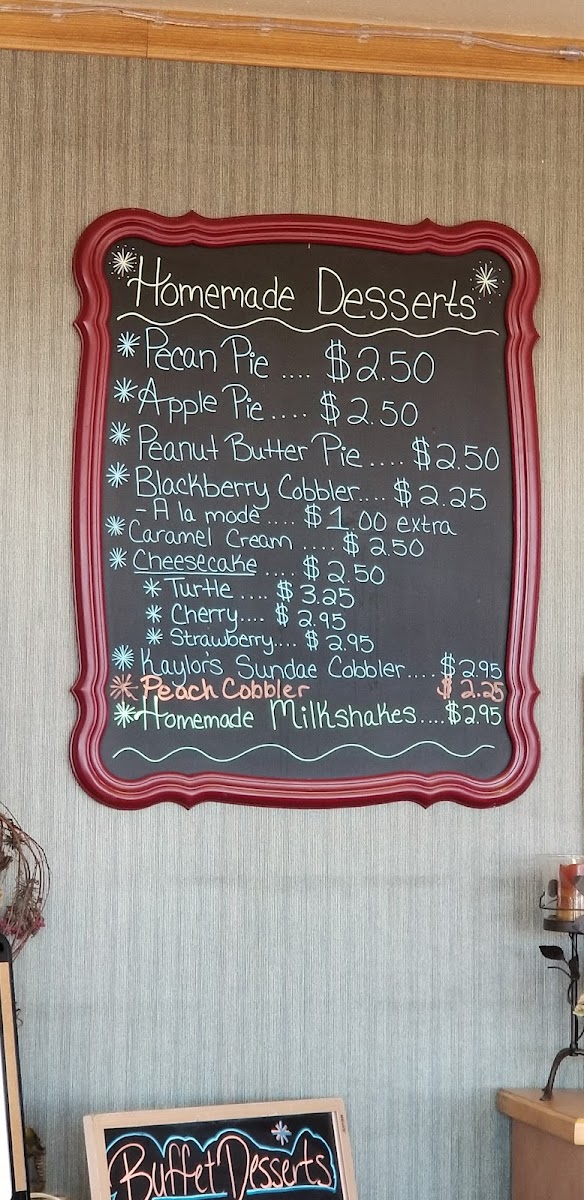 Homemade Desserts
Pecan Pie .... $2.50
Apple Pie..... $2.50
Peanut Butter Pie.... $2.50
Blackberry Cobbler.... $2.25
- A la mode .... $1.00 extra
Caramel Cream ..... $2.50
Cheesecake .... $2.50
Turtle .... $3.25
Cherry.... $2.95
Strawberry.... $2.95
Kaylor's Sundae Cobbler.... $2.95
Peach Cobbler $2.25
Homemade Milkshakes....$2.95
Buffet Desserts